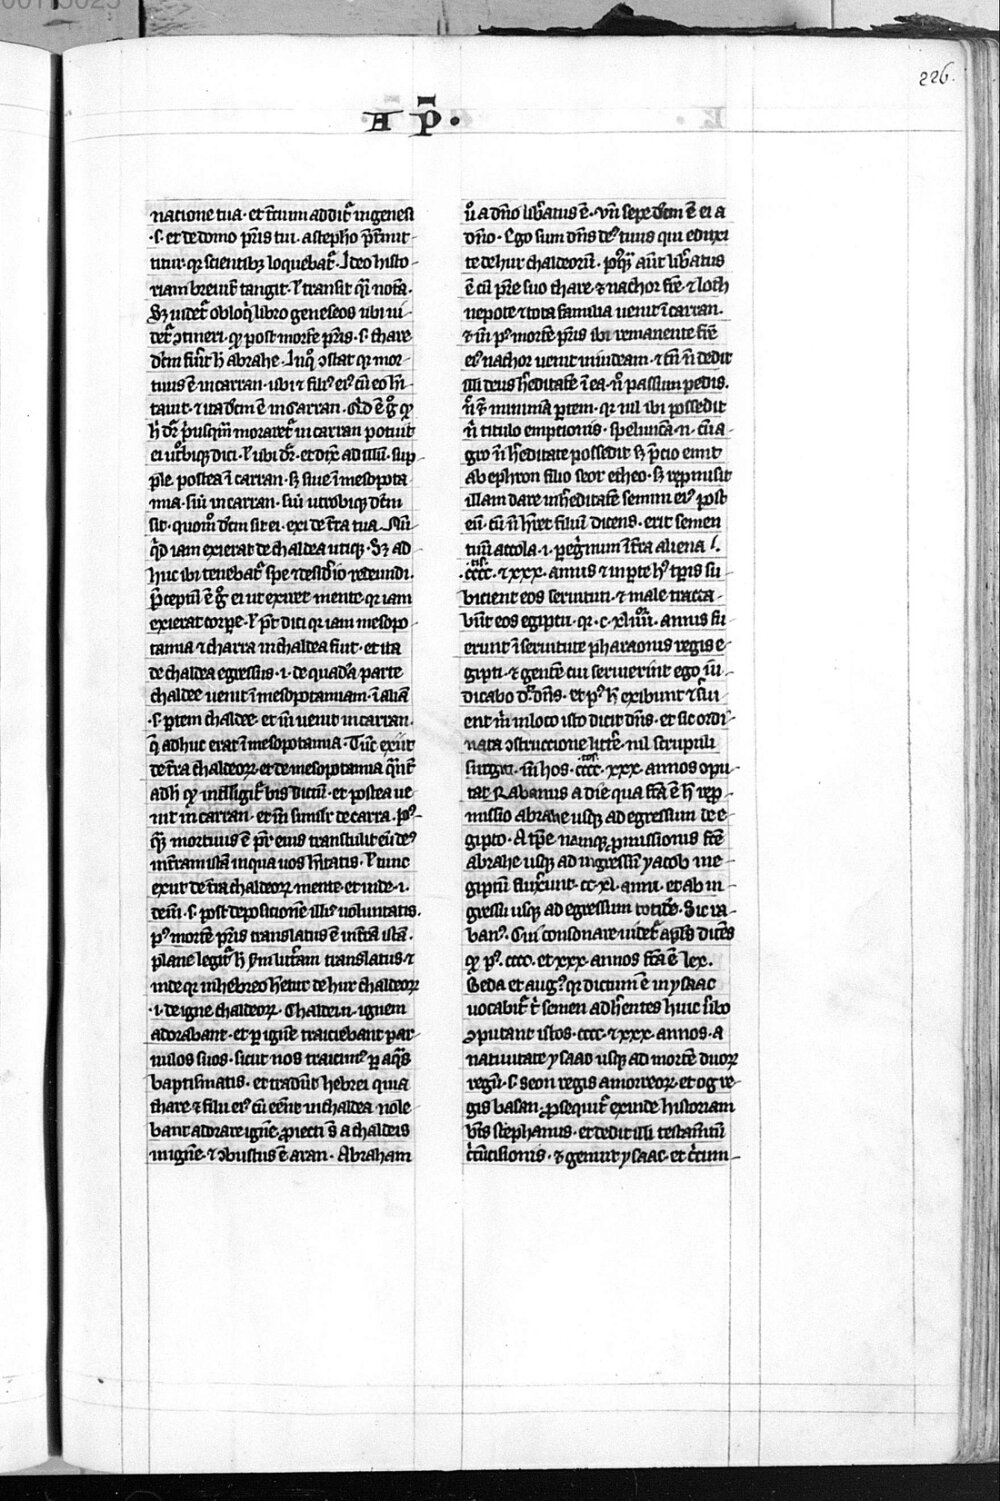 226.
A P̄.
natione tua · et t̄cium addit᷑ in genesi
· s · et de domo p̄ris tui · a stepho p̄t̄mit-
titur · qr scientibꝫ loquebat᷑ · Ideo histo-
riam breuit᷑ tangit · ł transit q̄i nota̅ ·
Sꝫ uidet᷑ obloq̄i libro geneseos ubi ui-
det᷑ ꝯtineri · qͥ post morte̅ p̄ris · s · thare
dc̄m fu̅it h̄ abrahe · In qͦ ꝯstat qr mor-
tuus e̅ in carran · ibi ⁊ filiꝰ eiꝰ cu̅ eo hi-
tauit · ⁊ ita dc̄m e̅ in carran · Qͥd e̅ gͦ qͥ
h̄ dr̄ p̄usqᷓm moraret᷑ in carran potuit
ei ut̄bique dici · ł ibi dr̄ · et dix̄ ad illu̅ · sup-
ple postea i̅ carran · sꝫ siue i̅ mesopota
mia · siu̅ in carran · siu̅ utrobiqꝫ dc̄m
sit · quomͦ dc̄m sit ei · exi de t̄ra tua · Nu̅
qͥd iam exierat de chaldea utiqꝫ · Sꝫ ad
huc ibi tenebat᷑ spe ⁊ desid̄io redeundi ·
p̄ceptu̅ e̅ gͦ ei ut exiret mente qr iam
exierat corpe · ł pt̄ dici qr iam mesopo
tamia ⁊ charra in chaldea fiu̅t · et ita
de chaldea egressus · i · de quada̅ parte
chaldee uenit i̅ mesopotamiam · i̅ alia̅
· s · ꝑtem chaldee · et in̅ uenit in carran ·
q̄ adhuc erat i̅ mesopotamia · Tu̅c exiit
de t̄ra chaldeoꝝ · et de mesopotamia
adh̄ qͥ intelligit᷑ bis dictu̅ · et postea ue
nit in carran · et in̅ simil̄r de carra · Pꝰ-
qᷓꝫ mortuus e̅ p̄r eius transtulit eu̅ deꝰ
in t̄ram ista̅ in qua uos hi̅tatis · ł tunc
exiit de t̄ra chaldeoꝝ mente · et inde · i ·
dein̅ · s · post depositione̅ illiꝰ uoluntatis ·
pꝰ morte̅ p̄ris translatus e̅ in t̄ra̅ ista̅ ·
plane legit᷑ h̄ s̄m litt̄am translatus · ⁊
inde qr in hebreo h̄etur de hur chaldeoꝝ
· i · de igne chaldeoꝝ · Chaldei n · ignem
adorabant · et ꝑ igne̅ traiciebant par-
uulos suos · sicut nos traicimꝰ ꝑ aqᷓs
baptismatis · et tradu̅t hebrei quia
thare ⁊ filii eiꝰ cu̅ ee̅nt in chaldea nole-
bant adorare igne̅ · ꝓiecti s̅ a chaldeis
in igne̅ · ⁊ ꝯbustus e̅ aran · Abraham
u̅ a dn̅o lib̄atus e̅ · Vn̅ sepe dc̄m e̅ ei a
dn̅o · Ego sum dn̅s deꝰ tuus qui eduxi
te de hur chaldeoru̅ · Posqᷓꝫ aut̅ lib̄atus
e̅ cu̅ p̄re suo thare · ⁊ nachor fr̄e · ⁊ loth
nepote ⁊ tota familia uenit i̅ carran ·
⁊ in̅ pꝰ morte̅ p̄ris ibi remanente fr̄e
eiꝰ nachor uenit in iudeam · ⁊ tn̅ n̅ dedit
illi deus h̄editate̅ i̅ ea · n̅ passum pedis ·
minima̅ ꝑtem · qr nil ibi possedit
n̅ titulo emptionis · spelunca̅ · n · cu̅ a-
gro n̅ h̄editate possedit sꝫ p̄cio emit
ab ephron filio seor etheo · sꝫ repmisit
illam dare in h̄editate̅ semini eiꝰ post
eu̅ · cu̅ n̅ h̄ret filiu̅ dicens · erit semen
tuu̅ accola · i · ꝑeg̅num i̅ t̄ra aliena ł ·
· cccc · ⁊ xxx · annis ⁊ in ꝑte hꝰ tp̄ris su-
bicient eos seruituti · ⁊ male tracta-
bu̅t eos egiptii · qr · c · xliiii · annis fu-
erunt i̅ seruitute pharaonis regis e-
gipti · ⁊ gente̅ cui seruierint ego iu̅-
dicabo dr̄ dn̅s · et pꝰ h̄ exibunt ⁊ s̄ui-
ent m̅ in loco isto dicit dn̅s · et sic ordi-
nata ꝯstruccione litt̄e · nil scrupuli
surgit · In̅ hos · cccc · xxx · annos opu-
tat Rabanus a die qua fc̄a e̅ h̄ rep-
missio abrahe usqꝫ ad egressum de e-
gipto · A tp̄e namqꝫ ꝓmissionis fc̄e
abrahe usqꝫ ad ingressu̅ yacob in e-
giptu̅ flux̄unt · cc · xv · anni · et ab in-
gressu usqꝫ ad egressum totide̅ · Sic ra-
banꝰ · Cui consonare uidet᷑ apl̅s dice̅s
qͥ pꝰ · cccc · et xxx · annos fc̄a e̅ lex ·
Beda et augꝰ · qr dictum e̅ in ysaac
uocabit᷑ t̅ semen adh̄entes huic u̅bo
ꝯputant istos · cccc · ⁊ xxx · annos · a
natiuitate ysaac usqꝫ ad morte̅ duoꝝ
regu̅ · s · seon regis amorreoꝝ · et og re-
gis basan · ꝓsequit᷑ exinde historiam
bt̅s stephanus · et dedit illi testam̅tu̅
c̄cu̅cisionis · ⁊ genuit ysaac · et c̄cum-